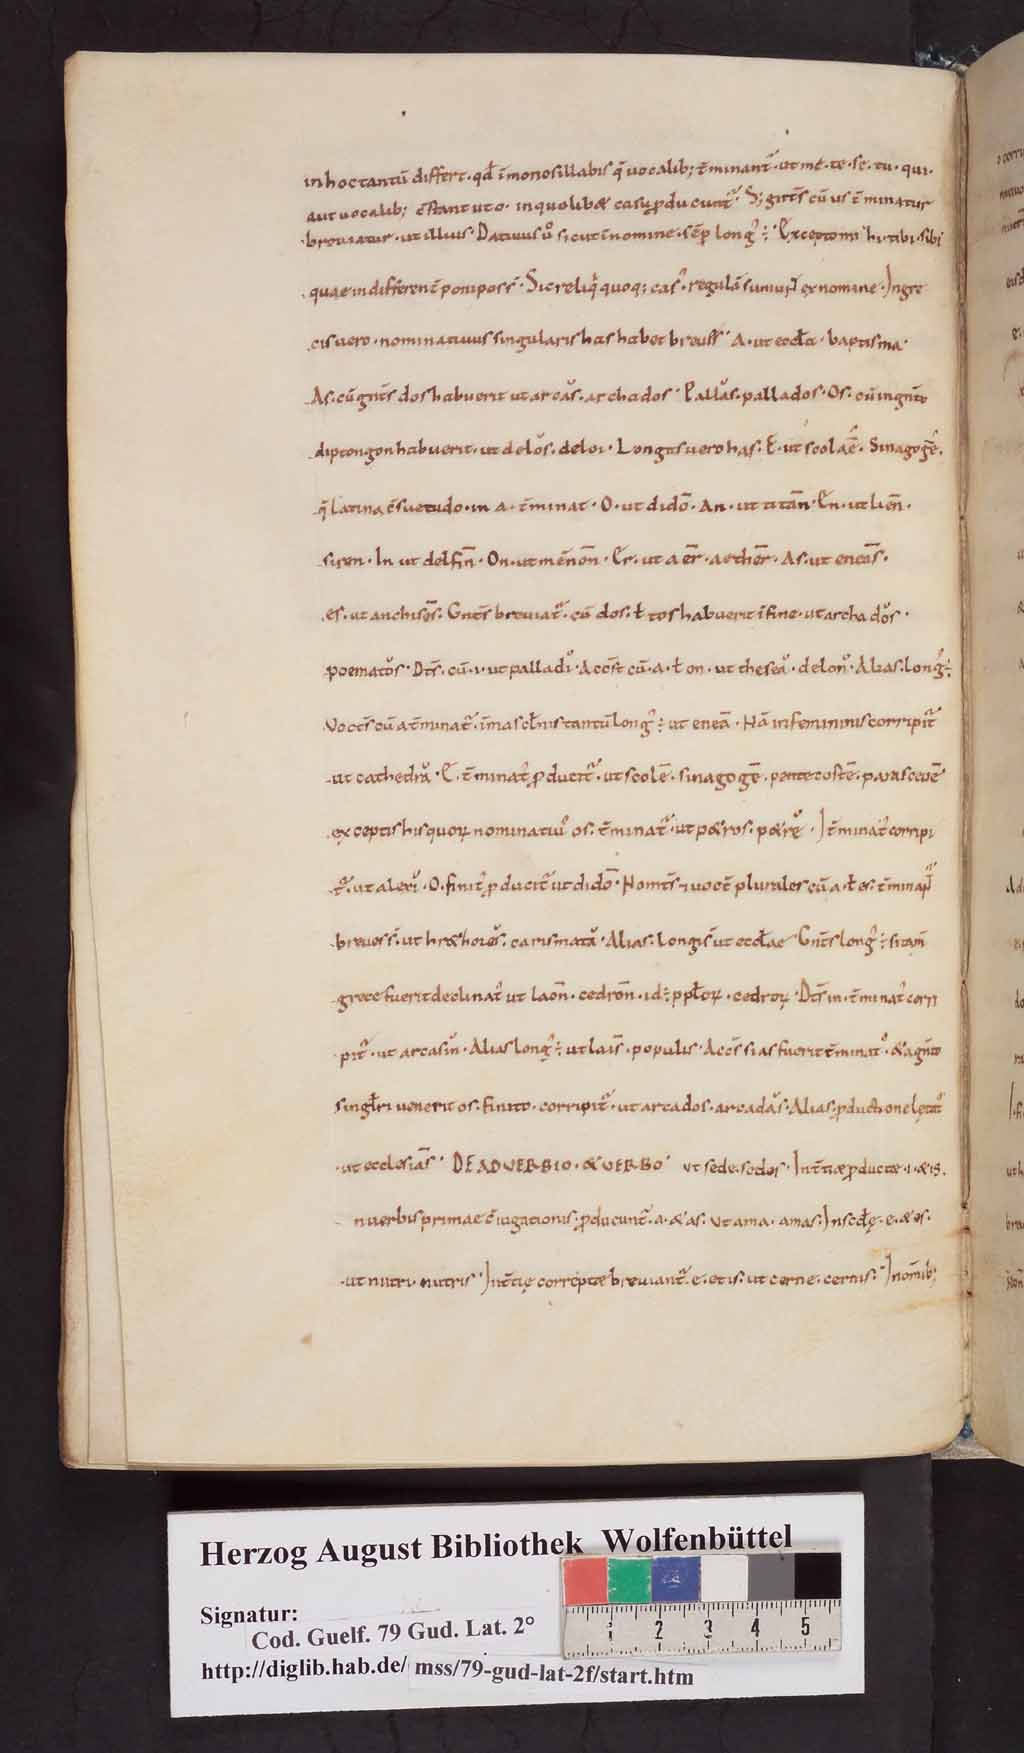 in hoc tantū differt · qd̄ ī monosillabis q̄ uocalib; t̄minant᷑ · ut me · te · se · tu · qui ·
aut uocalib; c̄stant ut o · in quolibæ casu ꝓducunt᷑ · Si gnt̄s cū us t̄minatur
breuiatur · ut illius · Datiuus u͛o sicut ī nomine · sēp long᷑ ÷ · Excepto mihi · tibi · sibi
quae indifferent̄ poni poss̄ · Sic reliq̄ quoq; cas᷑ · regulā sumunt ex nomine · In gre
cis uero · nominatiuus singularis has habet breues · A · ut eccła · baptisma ·
As · cū gnt̄s dos habuerit ut arcas · archados · Pallas · pallados · Os · cū in gnt̄o
diptongon habuerit · ut delos · deloi · Longas uero has · E · ut scolae · Sinagogē ·
q̄ latina c̄suetudo · in a · t̄minat · O · ut didō · An · ut titān · En · ut liēn ·
siren · In ut delfin̄ · On · ut mēnōn · Er · ut aēr · aethēr · As · ut eneās ·
es · ut anchisēs · Gnt̄s breuiat᷑ · cū dos · ł tos habuerit ī fine · ut archados ·
poematos · Dt̄s · cū · i · ut palladi · Accs̄t cū · a · ł on · ut thesea · delon · Alias · long᷑ ÷
Voct̄s cū a t̄minat᷑ · ī mascłinis tantū long᷑ ÷ ut eneā · Nā in femininis corripit᷑
ut cathedra · E · t̄minat᷑ ꝓducit᷑ · ut scolē · sinagogē · pentecostē · parascevē
exceptis his quoꝝ nominatiu᷑ os · t̄minat᷑ · ut pætros · pætre · I t̄minat᷑ corripi
t᷑ · ut alexi · O · finit᷑ ꝓducit᷑ ut didō · Nomt̄s ⁊ uoct̄ plurales cū a · ł es · t̄minant᷑
breues s̄ · ut hræthores · carismata · Alias · Longis̄ ut eccłae · Gnt̄s long᷑ ÷ si tam̄
grece fuerit declinat᷑ ut laōn · cedrōn · id ÷ ppłoꝝ · cedroꝝ · Dt̄s in · t̄minat᷑ corri
pit᷑ · ut arcasin · Alias long᷑ ÷ ut lais̄ · populis · Accs̄ si as fuerit t̄minat᷑ · & a gnt̄o
singłri uenerit os · finito · corripit᷑ · ut arcados · arcadas · Alias · ꝓductione lętat᷑
ut ecclesiās · DE ADVERBIO · & VERBO · ut sede · sedes · In t̄tiæ ꝓductæ · i · & is ·
n uerbis primae c̄iugationis · ꝓducunt᷑ · a · & as · ut ama · amas · In scdę · e · & es ·
ut nutri · nutris · In t̄tię correptæ breuiant᷑ · e · et is · ut cerne · cernis · In om̄ib;
Herzog August Bibliothek Wolfenbüttel
Signatur:
Cod. Guelf. 79 Gud. Lat. 2°
http://diglib.hab.de/ mss/79-gud-lat-2f/start.htm
1 2 3 4 5